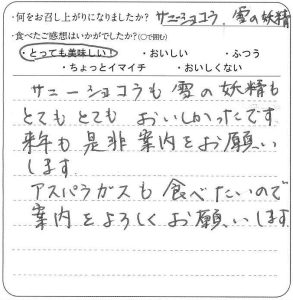 ・何をお召し上がりになりましたか？ サニーショコラ、雪の妖精
・食べたご感想はいかがでしたか？（○で囲む）
・とっても美味しい！ ・おいしい ・ふつう
・ちょっとイマイチ ・おいしくない
サニーショコラも雪の妖精も
とてもとても おいしかったです
来年も是非案内をお願い
します
アスパラガスも食べたいので
案内をよろしくお願いします